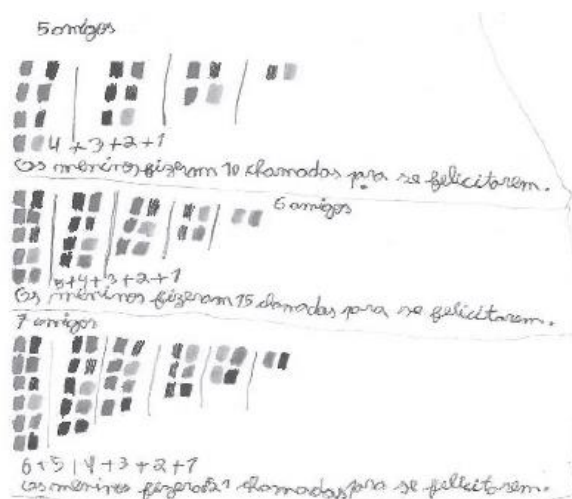 5 amigos
4 + 3 + 2 + 1
Os meninos fizeram 10 chamadas para se felicitarem.
6 amigos
5 + 4 + 3 + 2 + 1
Os meninos fizeram 15 chamadas para se felicitarem.
7 amigos
6 + 5 | 4 + 3 + 2 + 1
Os meninos fizeram 21 chamadas para se felicitarem.